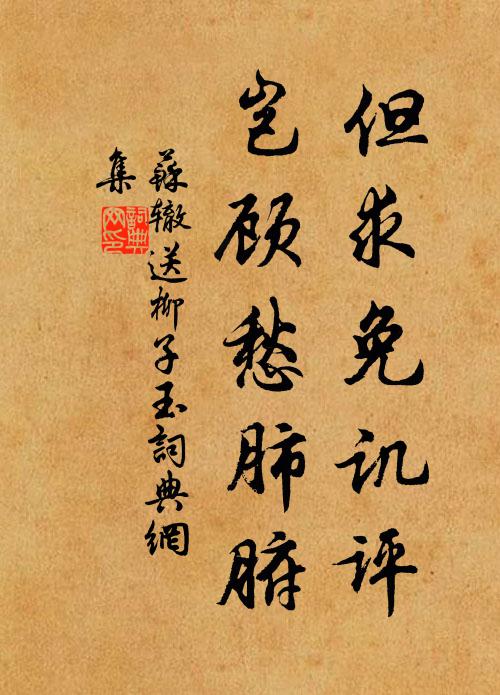 但求免讥评
岂顾愁肺腑
蘇辙送柳子玉詞典網
集
詞典網印